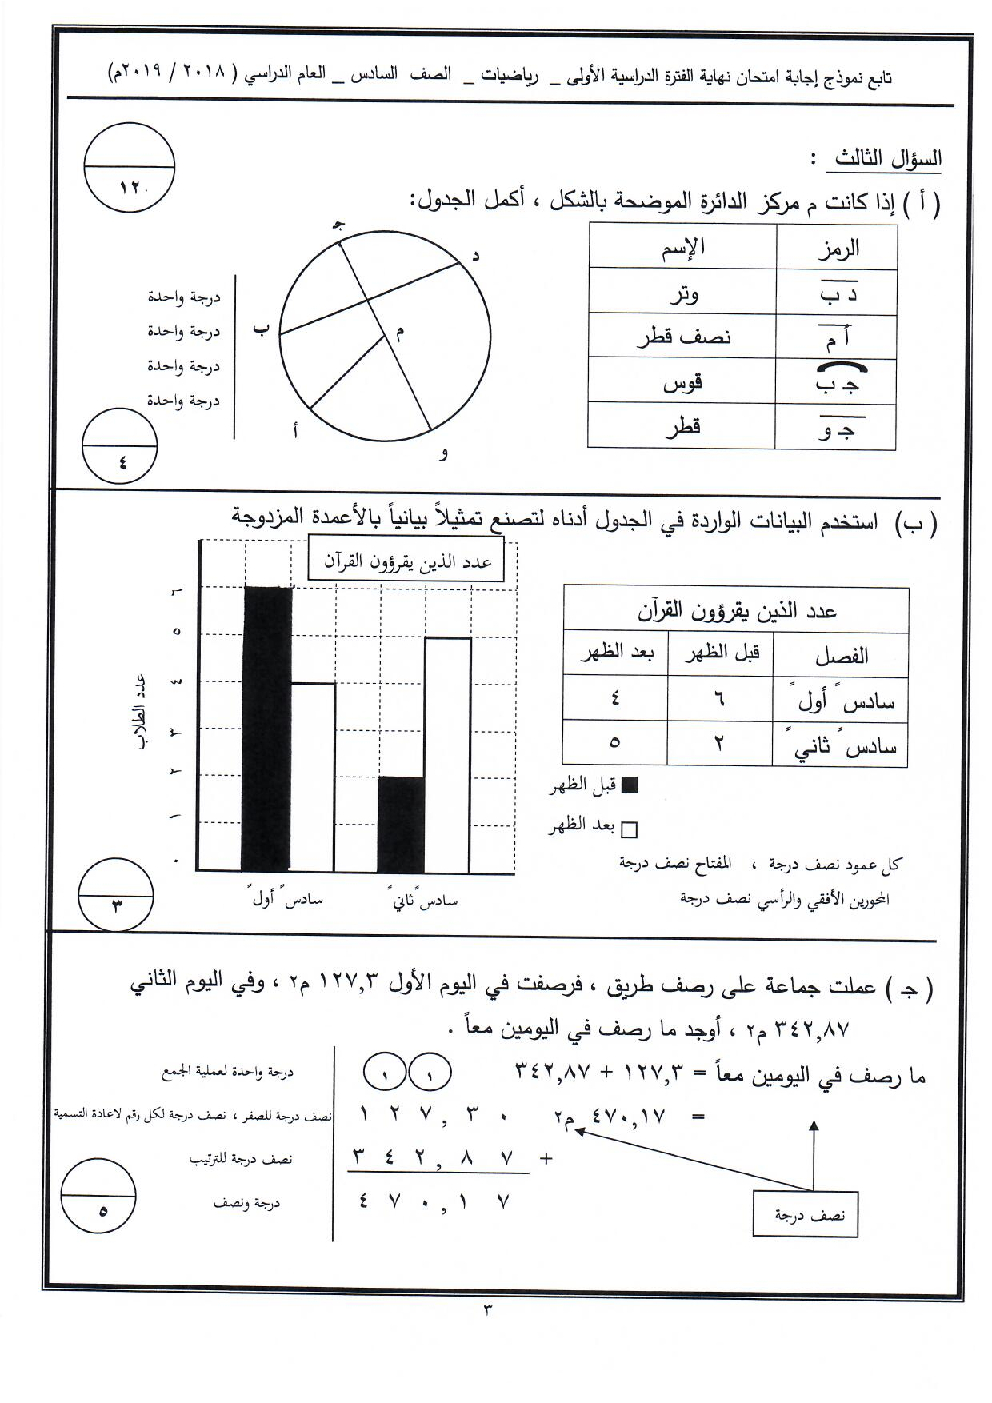 تابع نموذج إجابة امتحان نهاية الفترة الدراسية الأولى _ رياضيات _ الصف السادس _ العام الدراسي ( ٢٠١٨ / ٢٠١٩م)
السؤال الثالث :
١٢
( أ ) إذا كانت م مركز الدائرة الموضحة بالشكل ، أكمل الجدول:
الرمز الإسم
د ب وتر
أ م نصف قطر
جـ ب قوس
جـ و قطر
جـ
د
ب
م
أ
و
درجة واحدة
درجة واحدة
درجة واحدة
درجة واحدة
٤
( ب ) استخدم البيانات الواردة في الجدول أدناه لتصنع تمثيلاً بيانياً بالأعمدة المزدوجة
عدد الذين يقرؤون القرآن
الفصل قبل الظهر بعد الظهر
سادس ً أول ً ٦ ٤
سادس ً ثاني ً ٢ ٥
قبل الظهر
بعد الظهر
كل عمود نصف درجة ، المفتاح نصف درجة
المحورين الأفقي والرأسي نصف درجة
عدد الذين يقرؤون القرآن
عدد الطلاب
٦
٥
٤
٣
٢
١
٠
سادس ً أول ً سادس ً ثاني ً
٣
( جـ ) عملت جماعة على رصف طريق ، فرصفت في اليوم الأول ١٢٧,٣ م٢ ، وفي اليوم الثاني
٣٤٢,٨٧ م٢ ، أوجد ما رصف في اليومين معاً .
ما رصف في اليومين معاً = ١٢٧,٣ + ٣٤٢,٨٧
= ٤٧٠,١٧ م٢
نصف درجة
١ ١
١ ٢ ٧, ٣ ٠
٣ ٤ ٢, ٨ ٧ +
٤ ٧ ٠, ١ ٧
درجة واحدة لعملية الجمع
نصف درجة للصفر ، نصف درجة لكل رقم لاعادة التسمية
نصف درجة للترتيب
درجة ونصف
٥
٣